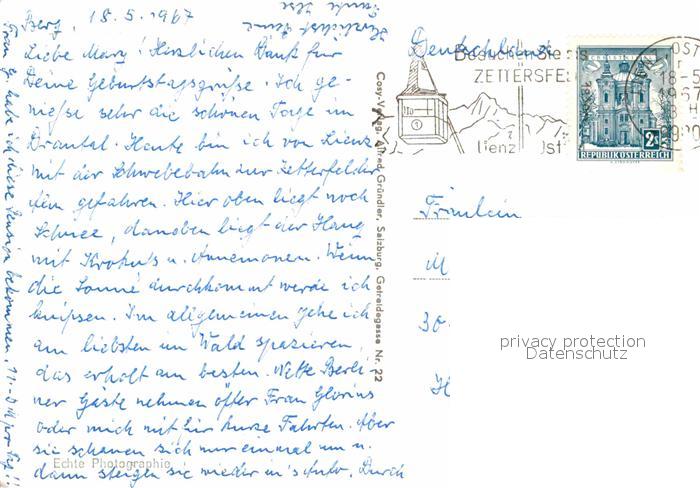 Berg, 18.5.1967
Liebe Mary! Herzlichen Dank für
Deine Geburtstagsgrüße. Ich ge-
nieße sehr die schönen Tage im
Drautal. Heute bin ich von Lienz
mit der Schwebebahn zur Zetterfelder
gefahren. Hier oben liegt noch
Schnee, daneben liegt der Hang
mit Krokus u. Annemonen. Wenn
die Sonne durchkommt werde ich
knipsen. Im allgemeinen gehe ich
am liebsten im Wald spazieren,
das erholt am besten. Nette Berli-
ner Gäste nehmen öfter Frau Glorius
oder mich mit für kurze Fahrten. Aber
sie schauen sich nur einmal um u.
dann steigen sie wieder in's Auto. Durch
Frau G. habe ich diese Pension bekommen, 11.- DM pro Tag!!
Herzlichst Deine
Tante Ilse
Echte Photographie
Cosy-Verlag, Alfred Gründler, Salzburg, Getreidegasse Nr. 22
Deutschland
Besuchen Sie
ZETTERSFE
Lienz Ost
REPUBLIK ÖSTERREICH
2S
OST
18-5
1967
Fräulein
M
30
H
privacy protection
Datenschutz